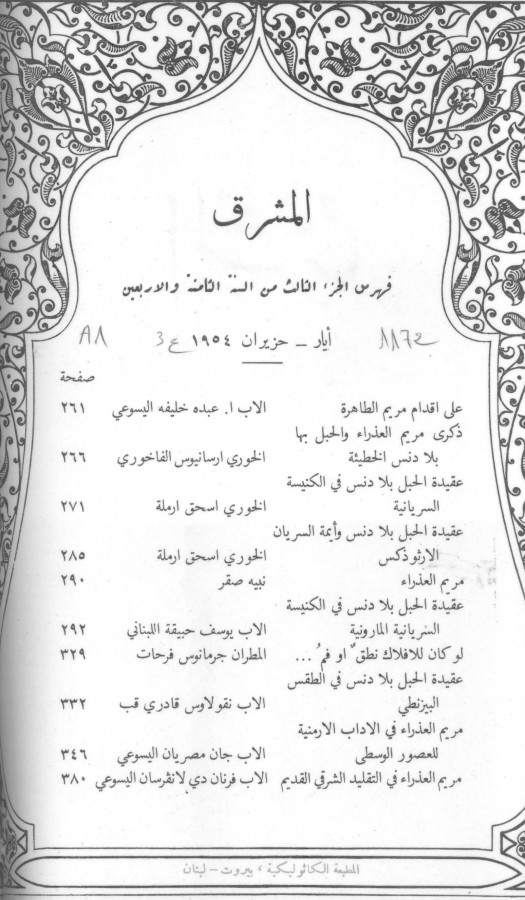 المشرق
فهرس الجزء الثالث من السنة الثامنة والاربعين
أيار - حزيران ١٩٥٤
ع 3
صفحة
على اقدام مريم الطاهرة الاب ا. عبده خليفه اليسوعي ٢٦١
ذكرى مريم العذراء والحبل بها
بلا دنس الخطيئة الخوري ارسانيوس الفاخوري ٢٦٦
عقيدة الحبل بلا دنس في الكنيسة
السريانية الخوري اسحق ارملة ٢٧١
عقيدة الحبل بلا دنس وأيمة السريان
الارثوذكس الخوري اسحق ارملة ٢٨٥
مريم العذراء نبيه صقر ٢٩٠
عقيدة الحبل بلا دنس في الكنيسة
السريانية المارونية الاب يوسف حبيقة اللبناني ٢٩٢
لو كان للافلاك نطقٌ او فمُ ... المطران جرمانوس فرحات ٣٢٩
عقيدة الحبل بلا دنس في الطقس
البيزنطي الاب نقولاوس قادري قب ٣٣٢
مريم العذراء في الاداب الارمنية
للعصور الوسطى الاب جان مصريان اليسوعي ٣٤٦
مريم العذراء في التقليد الشرقي القديم الاب فرنان دي لانڤرسان اليسوعي ٣٨٠
المطبعة الكاثوليكية ، بيروت - لبنان